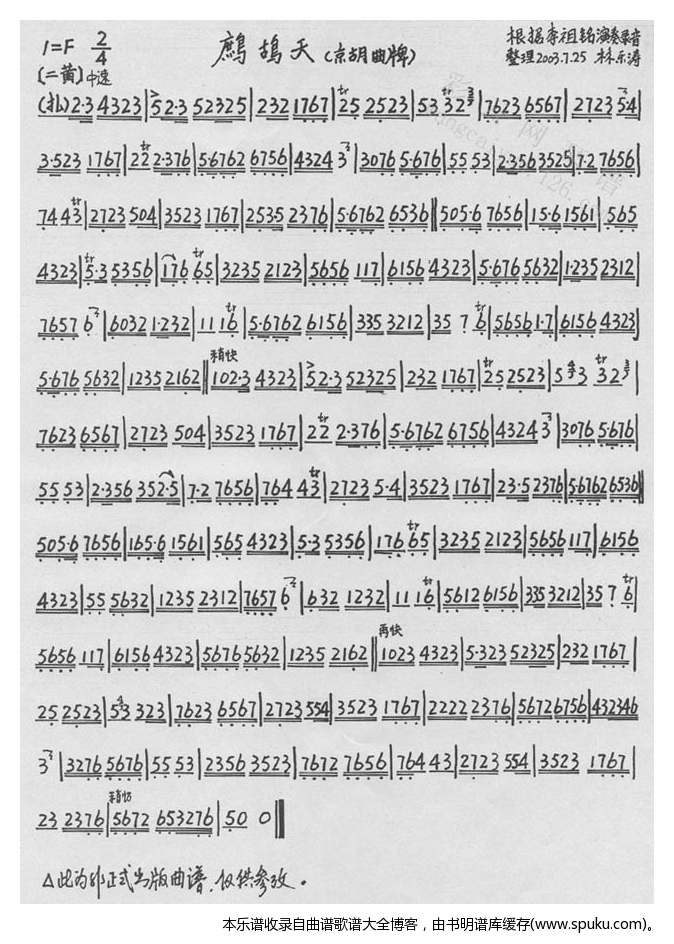 1=F 2/4
(二黄)中速
鹧鸪天(京胡曲牌)
根据李祖铭演奏录音
整理2003.7.25 林乐涛
(扎)2·3 4323|52·3 52325|232 1767|25 2523|53 32|7623 6567|2723 5·4|
3·523 1767|22 2·376|5·6762 6756|4324 3|3076 5·676|55 53|2·356 3525|7·2 7656|
7443|2723 504|3523 1767|2535 2376|5·6762 6536‖505·6 7656|15·6 1561|565
4323|5·3 5356|176 65|3235 2123|5656 117|6156 4323|5·676 5632|1·235 2312|
7657 6|6032 1·232|11 16|5·6762 6156|335 3212|35 7 6|5656 1·7|6156 4323|
稍快
5·676 5632|1235 2162‖102·3 4323|52·3 52325|232 1767|25 2523|5 43 32|
7623 6567|2723 504|3523 1767|22 2·376|5·6762 6756|4324 3|3076 5·676|
55 53|2·356 352·5|7·2 7656|764 43|2723 5·4|3523 1767|23·5 2376|5·6762 6536‖
505·6 7656|165·6 1561|565 4323|5·3 5356|176 65|3235 2123|5656 117|6156
4323|55 5632|1235 2312|7657 6|6·32 1232|11 16|5612 6156|335 3212|35 7 6|
再快
5656 117|6156 4323|5676 5632|1235 2162‖1023 4323|5·323 52325|232 1767|
25 2523|543 323|7623 6567|2723 554|3523 1767|2222 2376|5672 6756|432346
3|3276 5676|55 53|2356 3523|7672 7656|764 43|2723 554|3523 1767|
稍慢
23 2376|5672 653276|50 0‖
△此为非正式出版曲谱,仅供参考。
本乐谱收录自曲谱歌谱大全博客，由书明谱库缓存(www.spuku.com)。